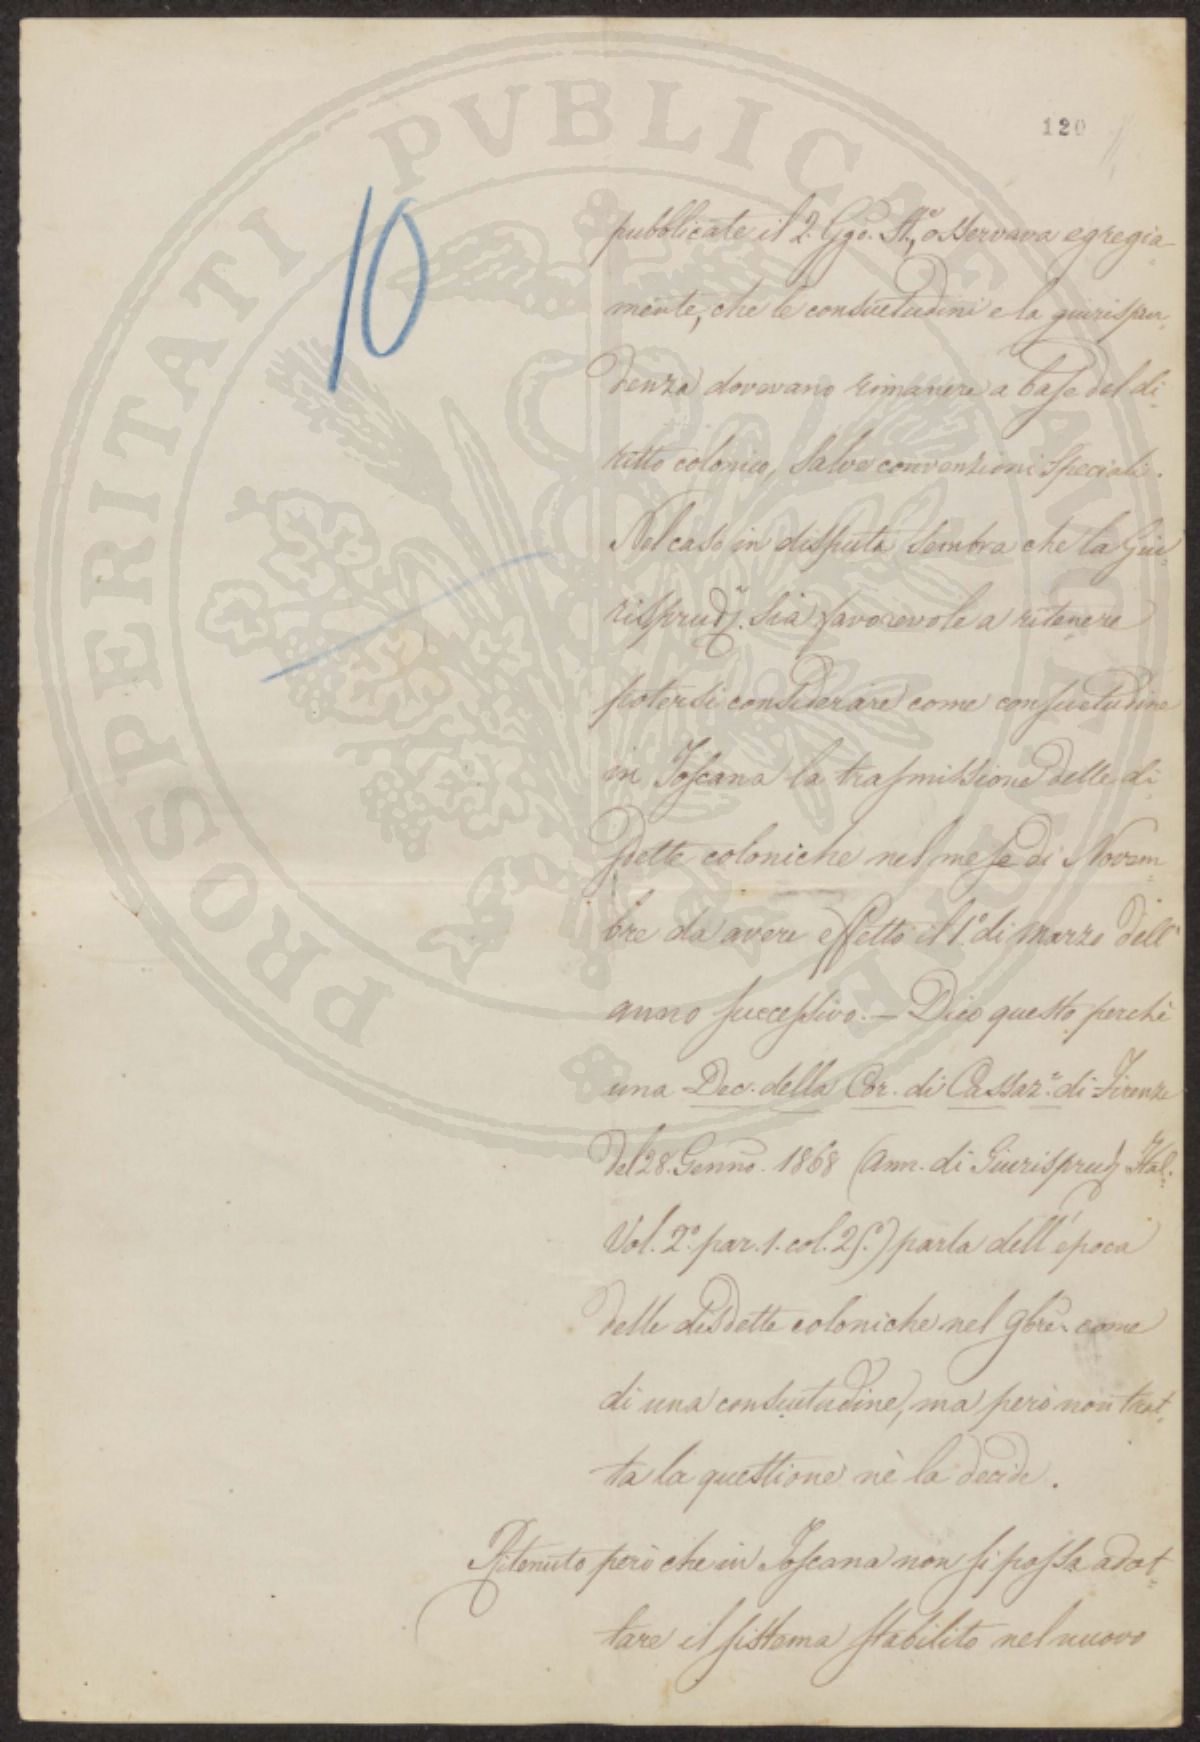 120
10
pubblicate il 2. Ggo. St.º, osservava egregia-
mente, che le consuetudini e la giurispru-
denza dovevano rimanere a base del di-
ritto colonico, salve convenzioni speciali.
Nel caso in disputa sembra che la Giu-
risprudz.ª sia favorevole a ritenere
potersi considerare come consuetudine
in Toscana la trasmissione delle di-
sdette coloniche nel mese di Novem-
bre da avere effetto il 1º. di marzo dell'
anno successivo. — Dico questo perchè
una Dec. della Cor. di Cassazª. di Firenze
del 28. Genno. 1868 (Ann. di Giurisprudz Ital.
Vol. 2º. par. 1. col. 25.) parla dell'epoca
delle disdette coloniche nel 9bre. come
di una consuetudine, ma però non trat-
ta la questione nè la decide.
Ritenuto però che in Toscana non si possa adot-
tare il sistema stabilito nel nuovo
PROSPERITATI PVBLICAE AVGENDAE